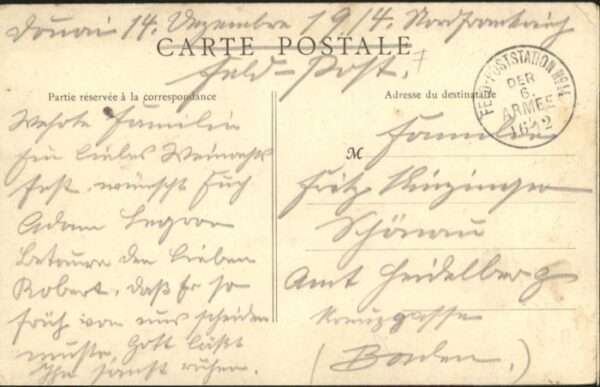 Douai 14. Dezember 1914. Nordfrankreich
CARTE POSTALE
Feld-Post.
Partie réservée à la correspondance
Adresse du destinataire
FELDPOSTSTATION No 14
DER
6.
ARMEE
16 12
Werte Familie
Ein liebes Weinachts
fest wünscht Euch
Adam
den lieben
Robert, daß Er so
früh von uns scheiden
musste, Gott läßt
Ihn sanft ruhen.
M
Familie
Fritz
Schönau
Amt Heidelberg
Kreuzgasse
(Baden.)